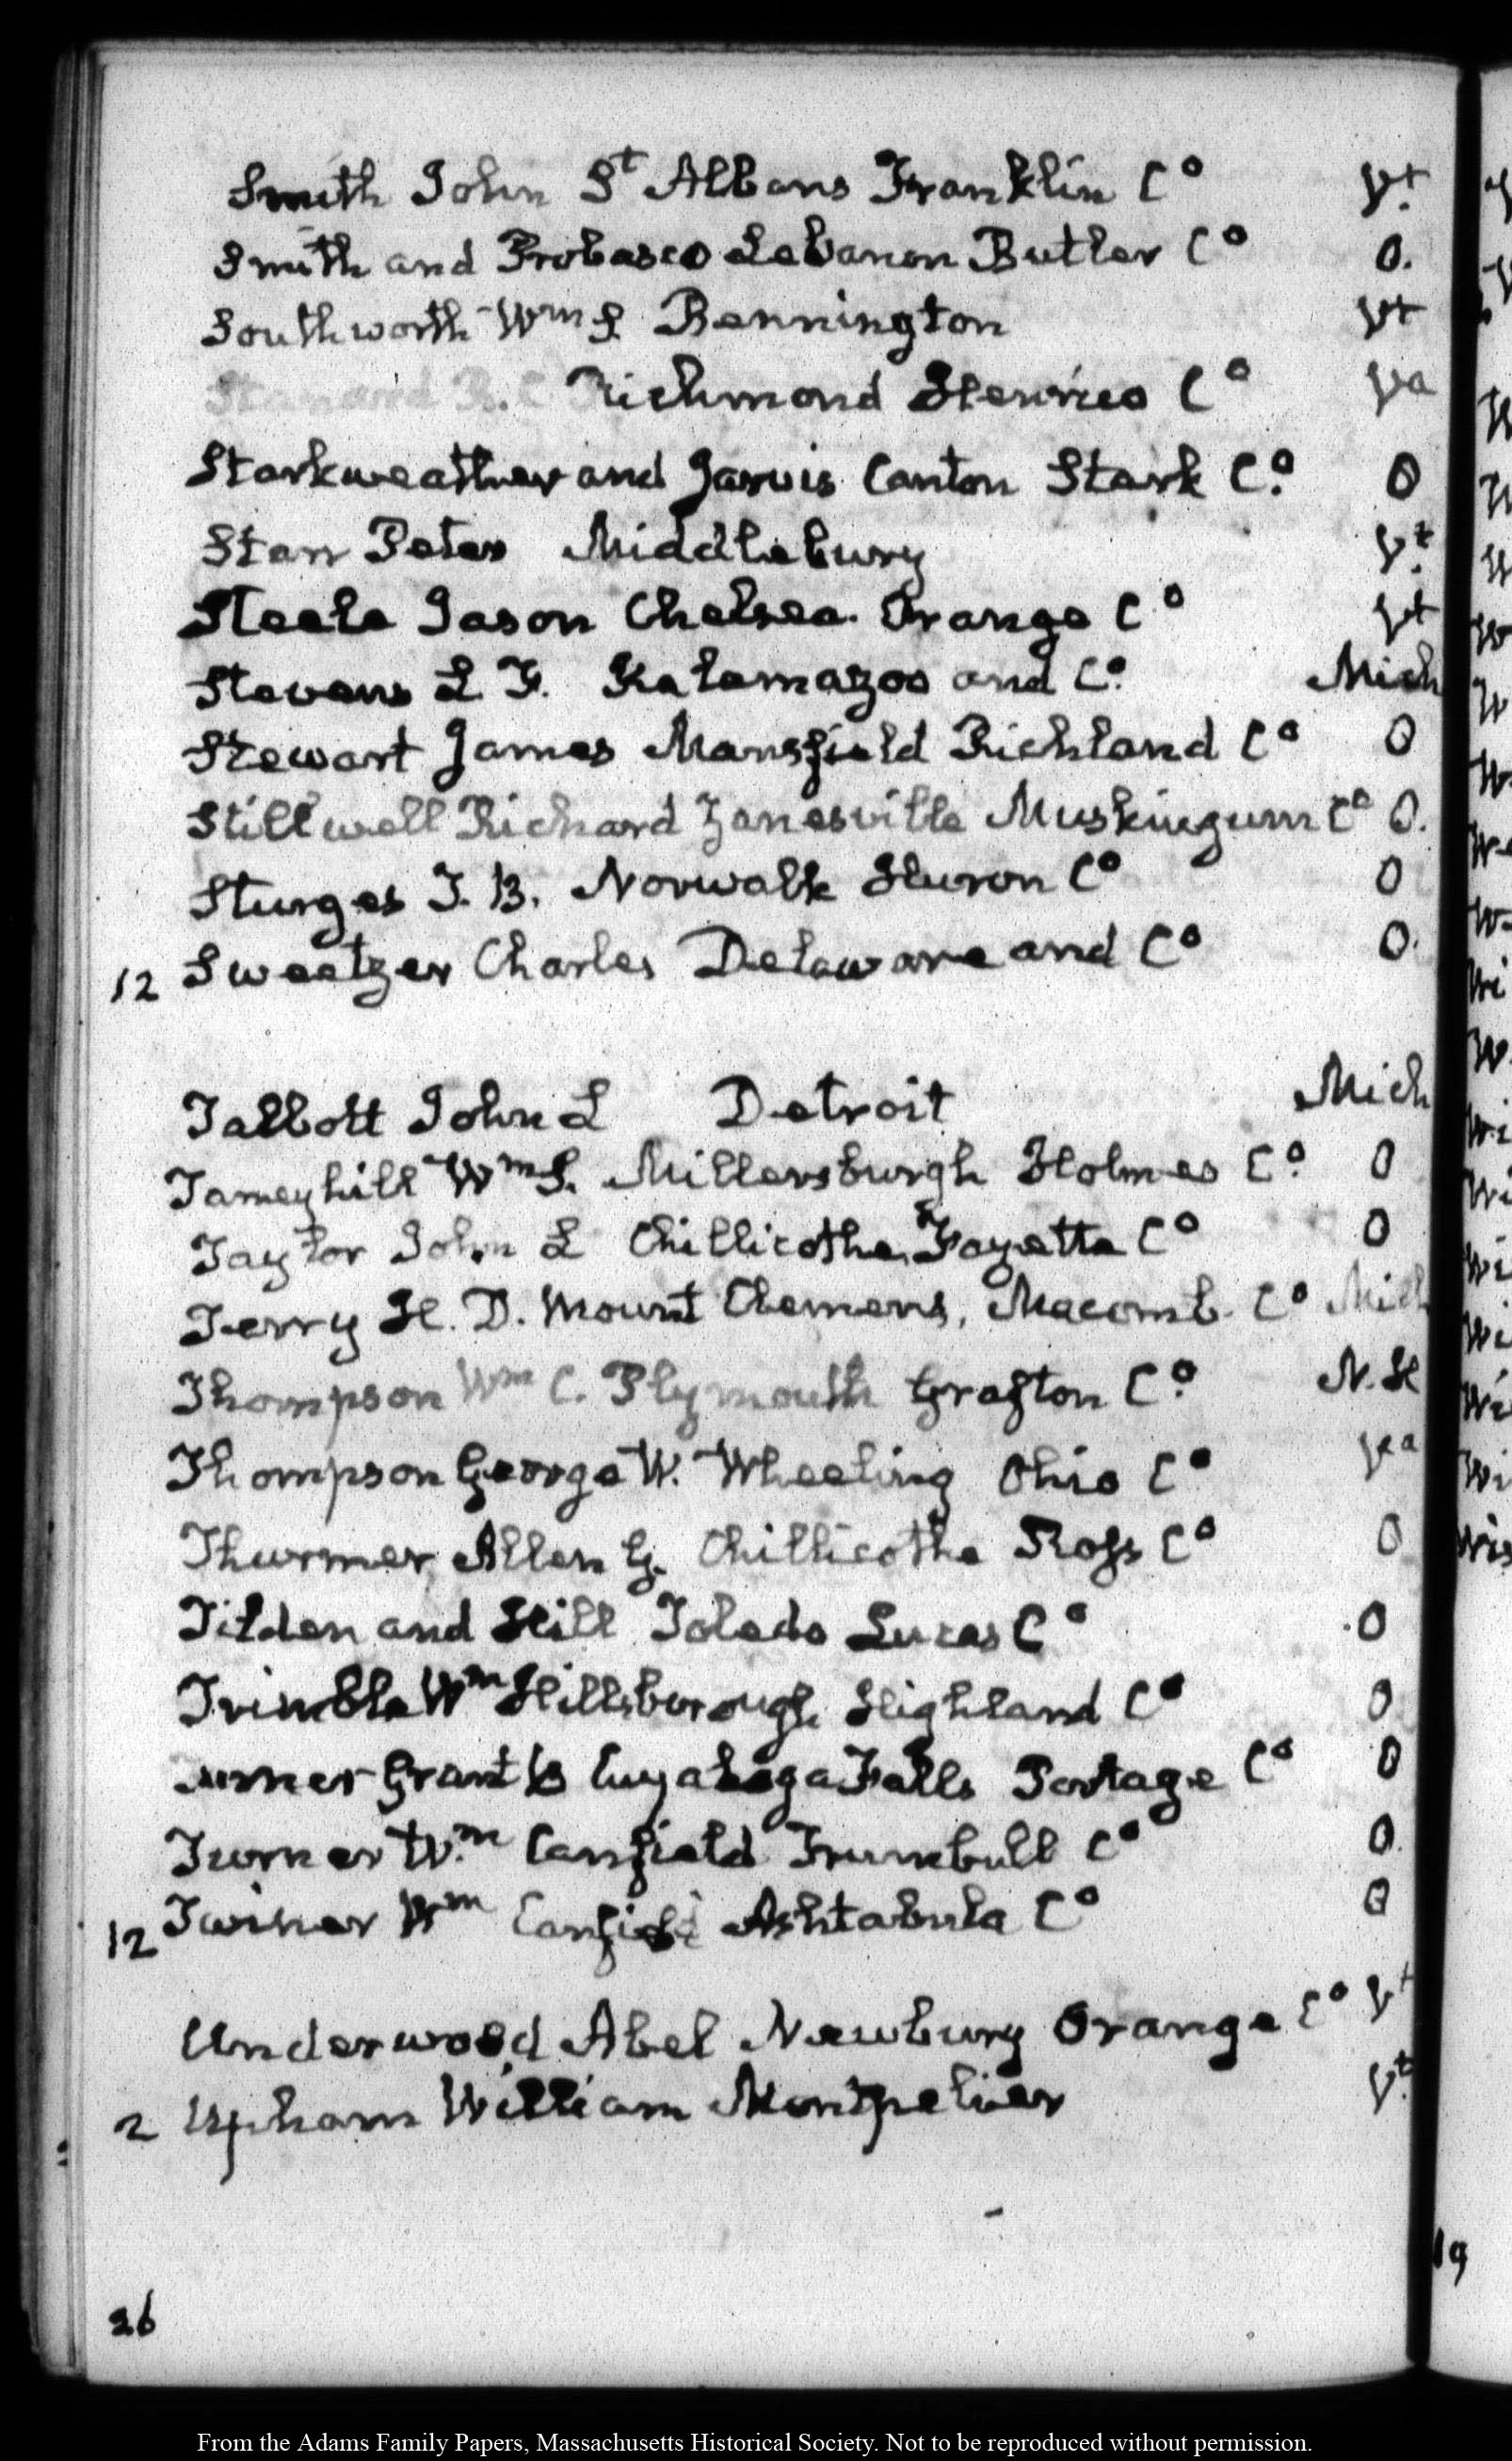 Smith John St Albans Franklin Co Vt.
Smith and Probasco Lebanon Butler Co O.
Southworth Wm S. Bennington Vt
Stannard R. C Richmond Henrico Co Va
Starkweather and Jarvis Canton Stark Co. O
Starr Peter Middlebury Vt.
Steele Jason Chelsea. Orange Co Vt
Stevens L F. Kalamazoo and Co. Mich
Stewart James Mansfield Richland Co O
Stillwell Richard Zanesville Muskingum Co O.
Sturges T. B. Norwalk Huron Co O
12 Sweetzer Charles Delaware and Co O.
Talbott John L Detroit Mich
Tameyhill Wm S. Millersburgh Holmes Co. O
Taylor John L Chillicothe, Fayette Co O
Terry H. D. Mount Clemens, Macomb. Co Mich
Thompson Wm C. Plymouth Grafton Co. N. H
Thompson George W. Wheeling Ohio Co Va
Thurmer Allen G. Chillicothe Ross Co O
Tilden and Hill Toledo Lucas Co O
Trimble Wm Hillsborough Highland Co O
Turner Grant B Cuyahoga Falls Portage Co O
Turner Wm. Canfield Trumbull Co O.
12 Twiner Wm Canfield Ashtabula Co O
Underwood Abel Newbury Orange Co Vt
2 Upham William Montpelier Vt.
26
19
From the Adams Family Papers, Massachusetts Historical Society. Not to be reproduced without permission.